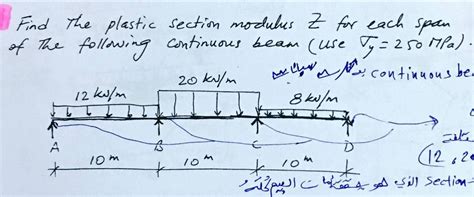 Find The plastic section modulus Z for each span
of The following continuous beam (use σy = 250 MPa).
continuous be
20 kN/m
12 kN/m
8 kN/m
A B C D
(12, 2
10 m 10 m 10 m
section الذي هو